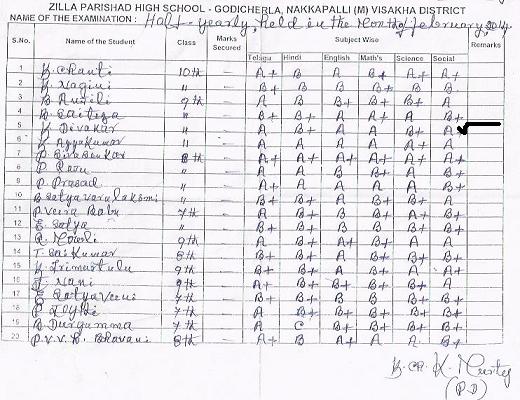 ZILLA PARISHAD HIGH SCHOOL - GODICHERLA, NAKKAPALLI (M) VISAKHA DISTRICT
NAME OF THE EXAMINATION : Half-yearly, held in the Month of february, 2014
S.No. Name of the Student Class Marks Secured Subject Wise Remarks
Telugu Hindi English Math's Science Social
1 K. Chanti 10th — A+ B A B+ A+ A+
2 K. Nagini " — B+ B B B+ B B
3 9th — A B B+ B+ B+ A
4 " — B+ B+ A A+ A B+
5 K. Divakar " — A B+ A A B+ A
6 K. Ayyakumar 11 — A B A A A+ A
7 P. Sivasankar 8th — A+ A+ A+ A+ A+ A+
8 P. Ramu " — A B B B A B+
9 P. Prasad " — A+ A A A A B+
10 B. Satyavaralakshmi " — B+ B+ A B+ B+ A
11 P. Veera Babu 7th — A B B B+ A+ B+
12 E. Satya " — B+ B+ B B B+ B+
13 R. Mouli 9th — A B A+ B+ A A
14 T. Sai Kumar 8th — B+ B+ A B+ B+ B+
15 K. Srimustulu 9th — B+ B+ A B+ A A+
16 J. Nani 9th — A+ B+ B+ B+ A B+
17 E. Satyaveni 7th — B+ B+ B B B+ B+
18 7th — B B+ B+ B+ B+ B+
19 B. Durgamma 7th — A C B+ A A B+
20 P.V.V.B. Bhavani 8th — A+ B A+ A A B+
K. Murty
(P.D)